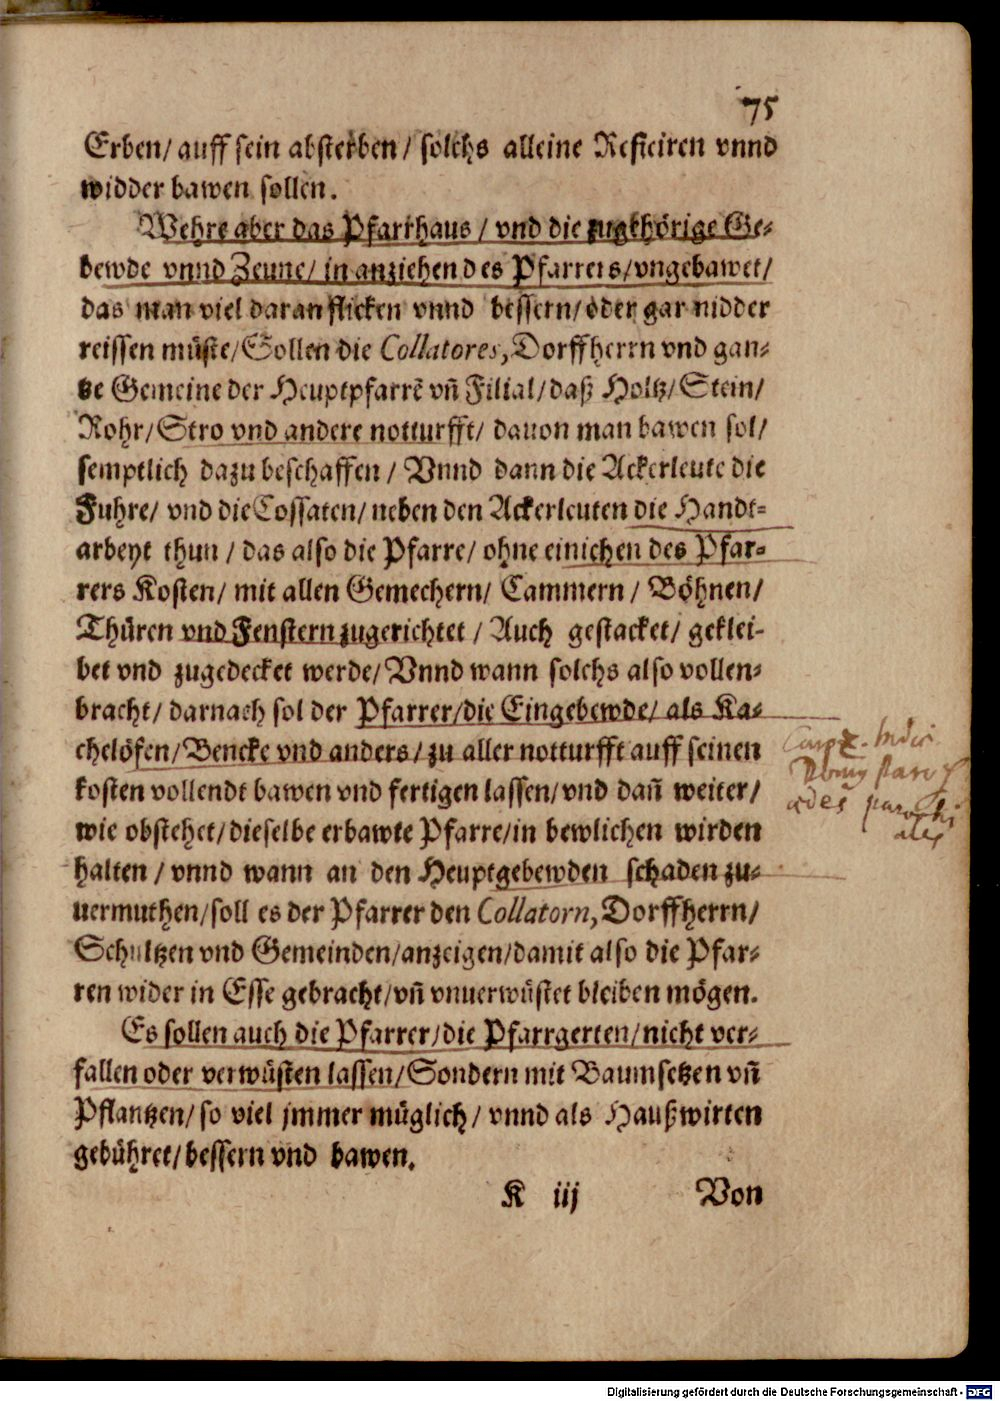 75
Erben/ auff sein absterben/ solchs alleine Reficiren vnnd
widder bawen sollen.
Wehre aber das Pfarrhaus/ vnd die zugehörige Ge-
bewde vnnd Zeune/ in anziehen des Pfarrers/ vngebawet/
das man viel daran flicken vnnd bessern/ oder gar nidder
reissen müste/ Sollen die Collatores, Dorffherrn vnd gan-
tze Gemeine der Heuptpfarrẽ vñ Filial/ daß Holtz/ Stein/
Rohr/ Stro vnd andere notturfft/ dauon man bawen sol/
semptlich dazu beschaffen/ Vnnd dann die Ackerleute die
Fuhre/ vnd die Cossaten/ neben den Ackerleuten die Handt-
arbeyt thun/ das also die Pfarre/ ohne einichen des Pfar-
rers Kosten/ mit allen Gemechern/ Cammern/ Böhnen/
Thüren vnd Fenstern zugerichtet/ Auch gestacket/ geklei-
bet vnd zugedecket werde/ Vnnd wann solchs also vollen-
bracht/ darnach sol der Pfarrer/ die Eingebewde/ als Ka-
chelöfen/ Bencke vnd anders/ zu aller notturfft auff seinen
kosten vollendt bawen vnd fertigen lassen/ vnd dañ weiter/
wie obstehet/ dieselbe erbawte Pfarre/ in bewlichen wirden
halten/ vnnd wann an den Heuptgebewden schaden zu-
uermuthen/ soll es der Pfarrer den Collatorn, Dorffherrn/
Schultzen vnd Gemeinden/ anzeigen/ damit also die Pfar-
ren wider in Esse gebracht/ vñ vnuerwüstet bleiben mögen.
Es sollen auch die Pfarrer/ die Pfarrgerten/ nicht ver-
fallen oder verwüsten lassen/ Sondern mit Baumsetzen vñ
Pflantzen/ so viel jmmer müglich/ vnnd als Haußwirten
gebühret/ bessern vnd bawen.
K iij Von
Carpz.
ædes parochi
ales
Digitalisierung gefördert durch die Deutsche Forschungsgemeinschaft - DFG